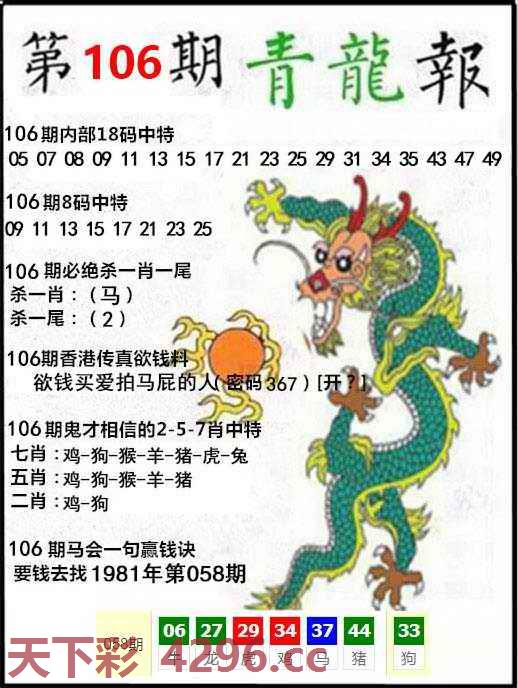 第106期青龍報
106期内部18码中特
05 07 08 09 11 13 15 17 21 23 25 29 31 34 35 43 47 49
106期8码中特
09 11 13 15 17 21 23 25
106期必绝杀一肖一尾
杀一肖：（马）
杀一尾：（2）
106期香港传真欲钱料
欲钱买爱拍马屁的人（密码367）[开？]
106期鬼才相信的2-5-7肖中特
七肖：鸡-狗-猴-羊-猪-虎-兔
五肖：鸡-狗-猴-羊-猪
二肖：鸡-狗
106期马会一句赢钱诀
要钱去找1981年第058期
058期 06 27 29 34 37 44 33
牛 龙 虎 鸡 马 猪 狗
天下彩 4296.cc